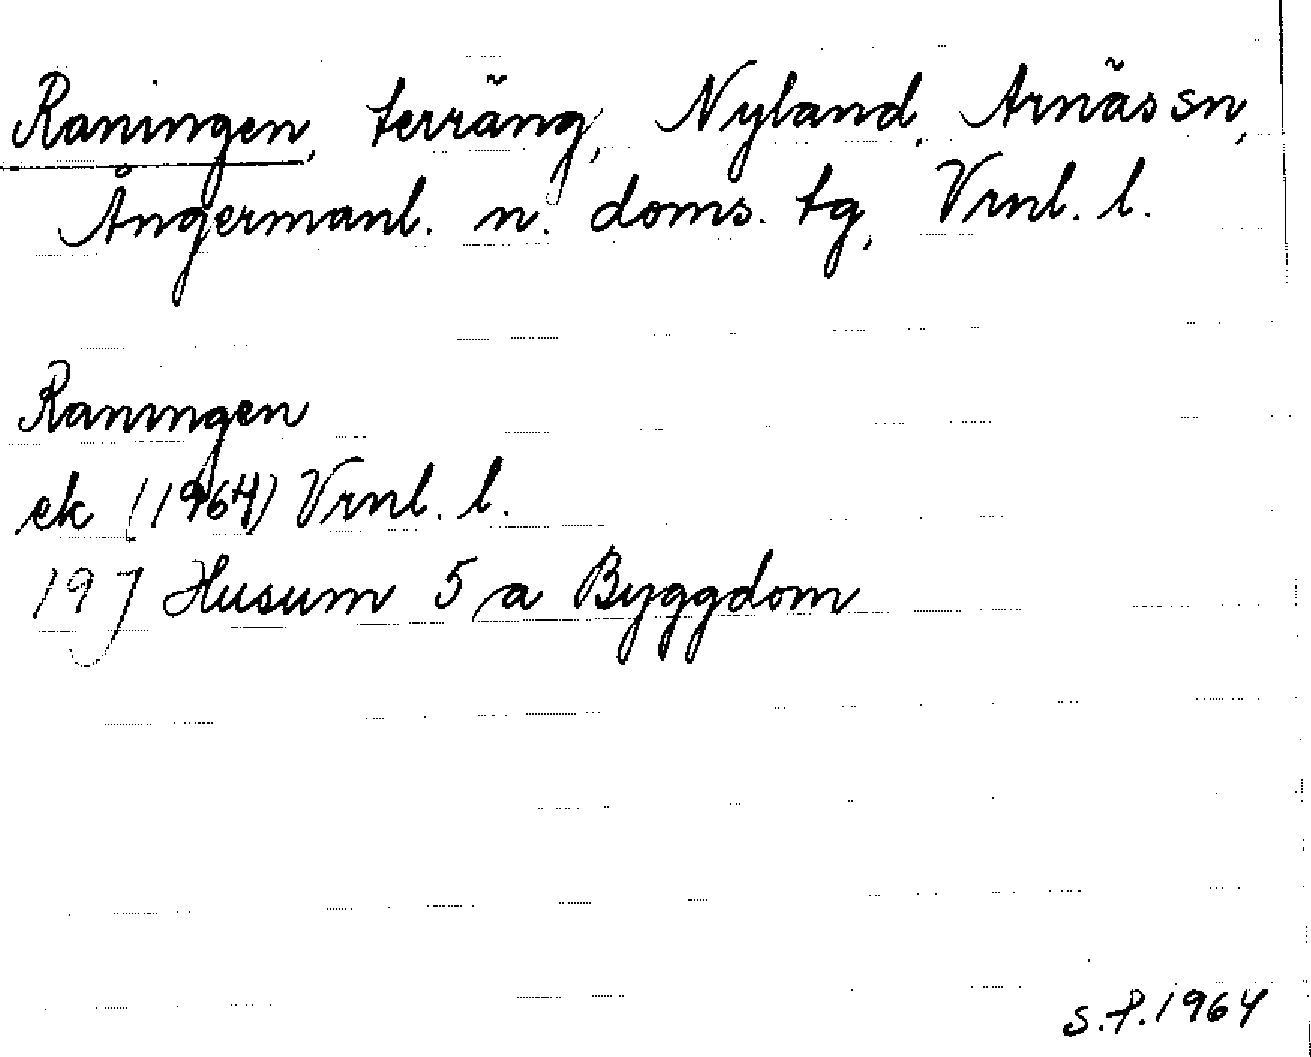 Raningen, terräng, Nyland, Arnäs sn,
Ångermanl. n. doms. tg, Vrnl. l.
Raningen
ek (1964) Vrnl. l.
19 J Husum 5 a Byggdom
S.P. 1964